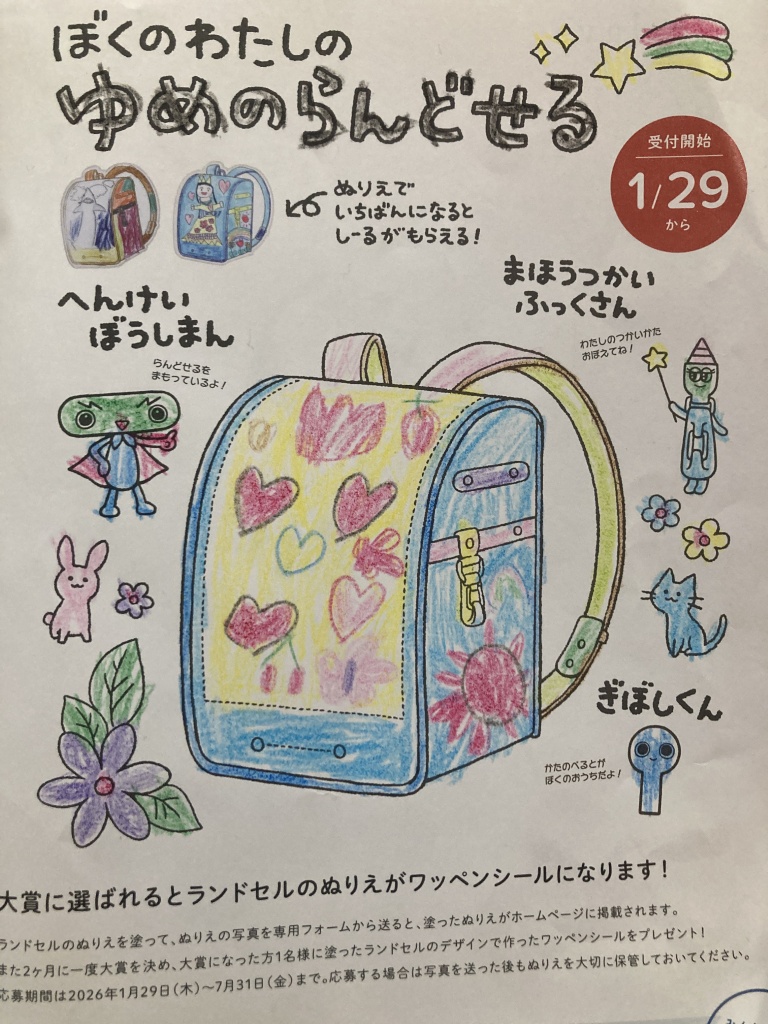 ぼくのわたしの
ゆめのらんどせる
受付開始
1/29
から
ぬりえで
いちばんになると
しーるがもらえる!
まほうつかい
ふっくさん
わたしのつかいかた
おぼえてね!
へんけい
ぼうしまん
らんどせるを
まもっているよ!
ぎぼしくん
かたのべるとが
ぼくのおうちだよ!
大賞に選ばれるとランドセルのぬりえがワッペンシールになります!
ランドセルのぬりえを塗って、ぬりえの写真を専用フォームから送ると、塗ったぬりえがホームページに掲載されます。
また2ヶ月に一度大賞を決め、大賞になった方1名様に塗ったランドセルのデザインで作ったワッペンシールをプレゼント!
応募期間は2026年1月29日(木)~7月31日(金)まで。応募する場合は写真を送った後もぬりえを大切に保管しておいてください。